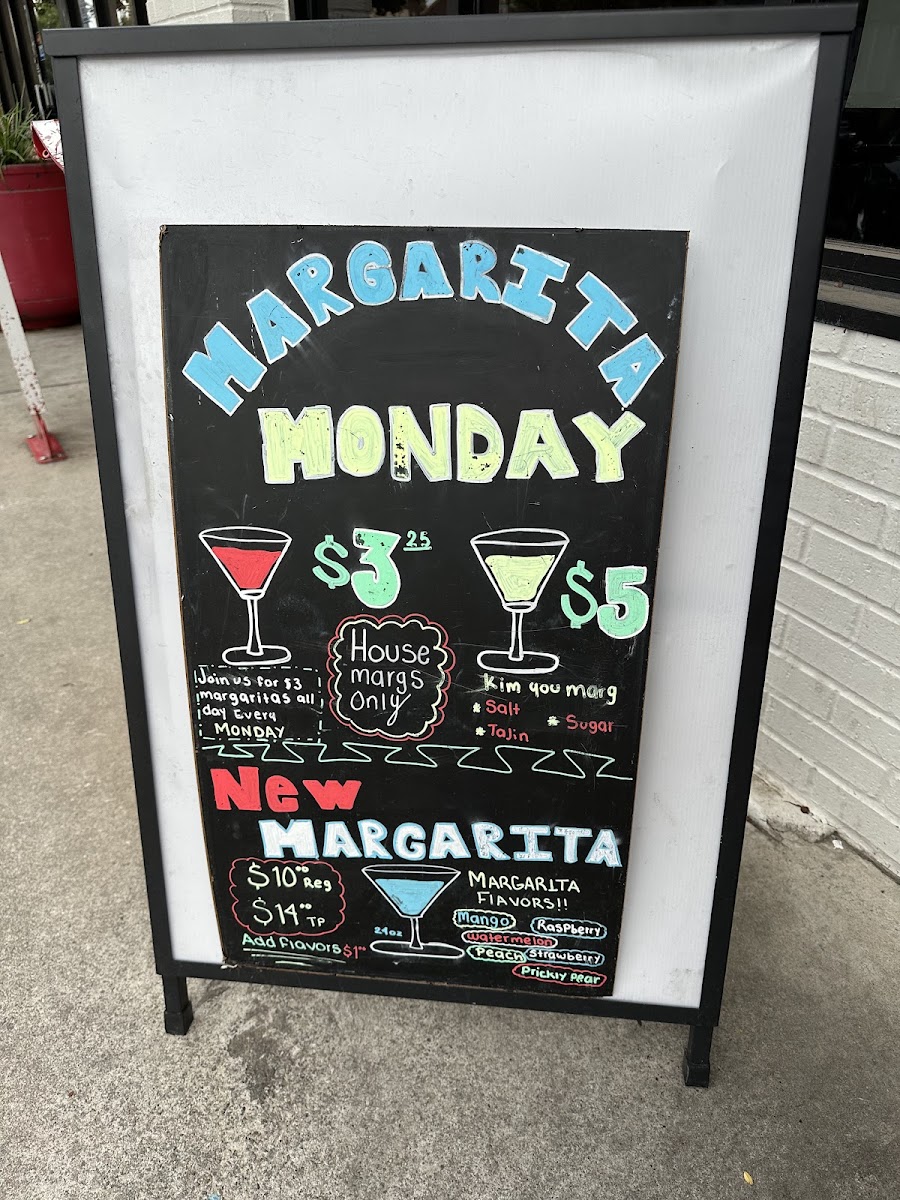 MARGARITA
MONDAY
$3.25
$5
House
margs
only
Join us for $3
margaritas all
day Every
MONDAY
Kim you marg
* Salt
* Sugar
* Tajin
New
MARGARITA
$10.00 Reg
$14.00 TP
Add Flavors $1.00
24oz
MARGARITA
FLAVORS!!
Mango
Raspberry
watermelon
Peach
strawberry
Prickly Pear